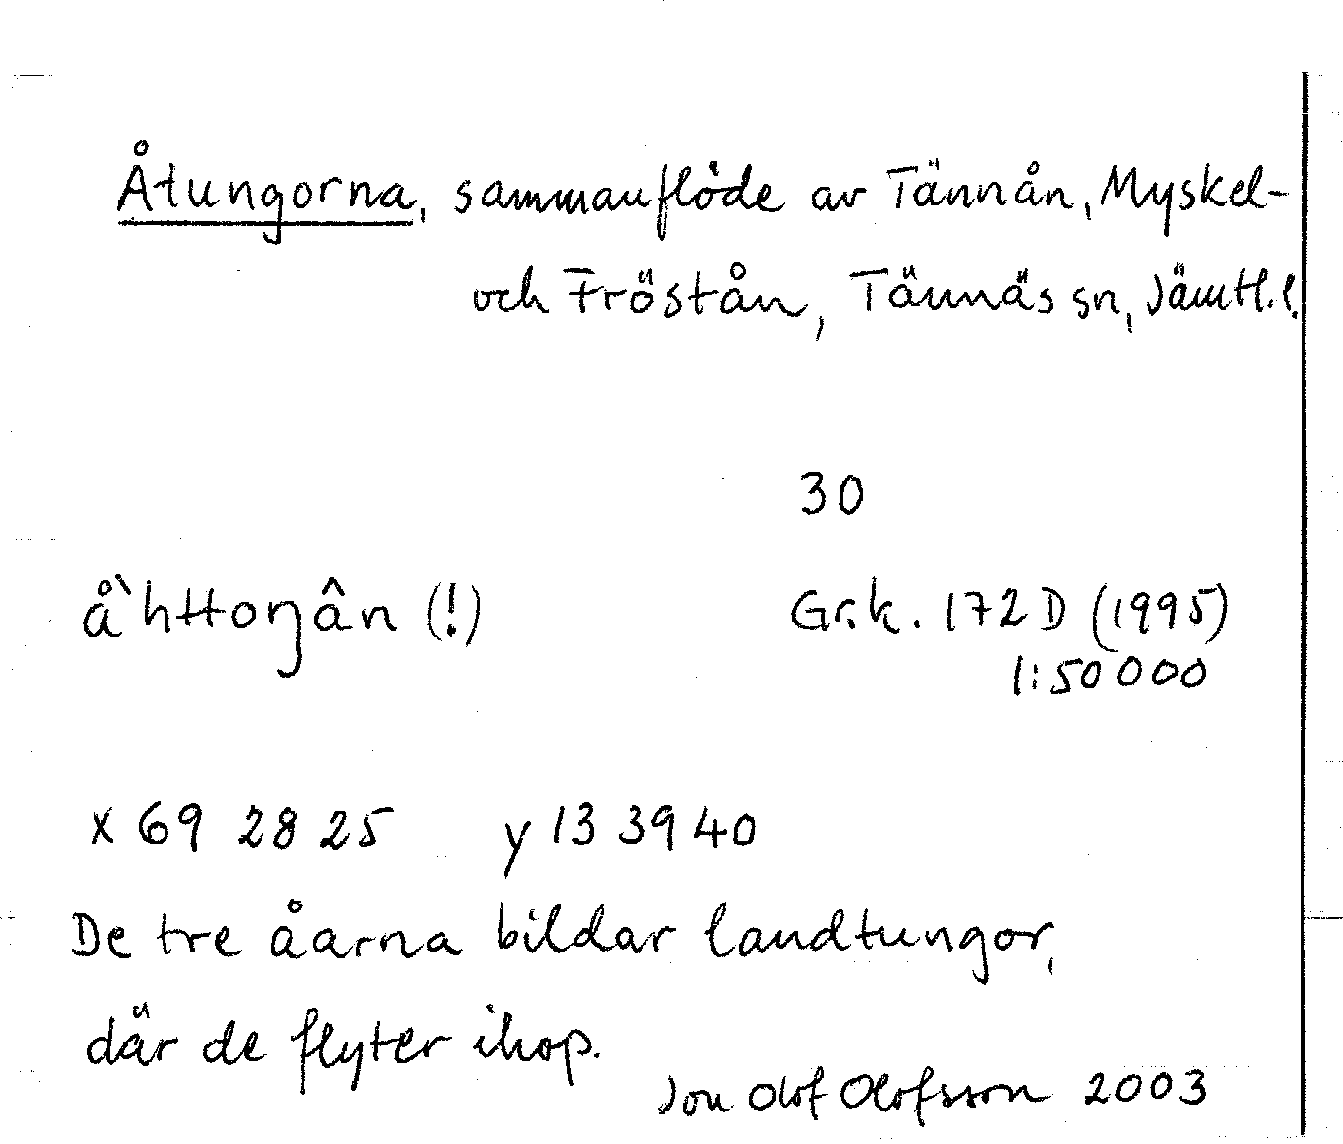 Åtungorna, sammanflöde av Tännån, Myskel-
och Fröstån, Tännäs sn, Jämtl.l.
30
å`httoŋân (!)
Gr.k. 172D (1995)
1:50 000
x 69 28 25 y 13 39 40
De tre åarna bildar landtungor,
där de flyter ihop.
Jon Olof Olofsson 2003